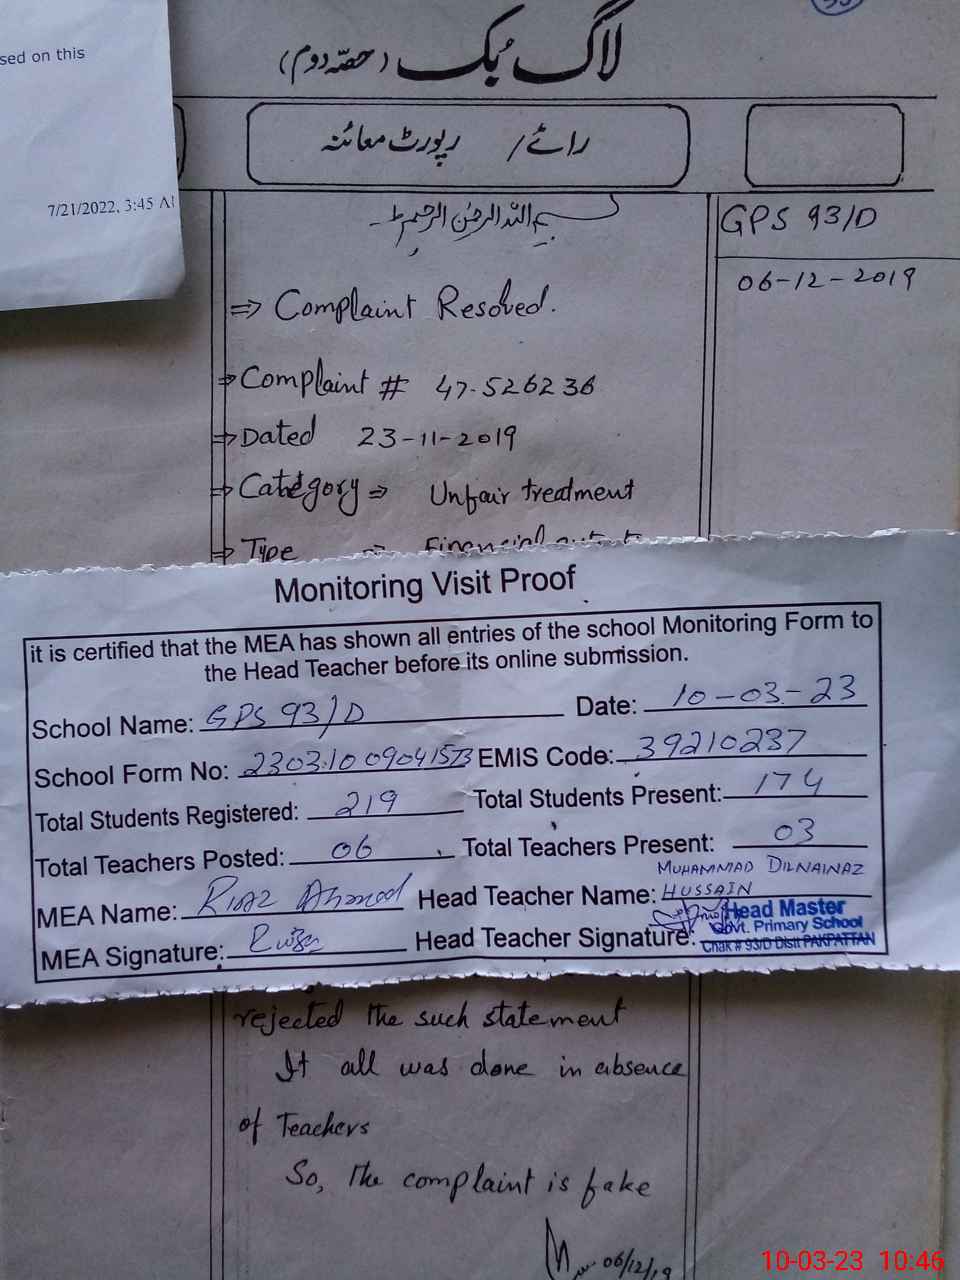 sed on this
7/21/2022, 3:45 A
لاگ بُک (حصّہ دوم)
رائے / رپورٹ معائنہ
بسم اللہ الرحمٰن الرحیم
GPS 93/D
06-12-2019
⇒ Complaint Resolved.
⇒ Complaint # 47-526236
⇒ Dated 23-11-2019
⇒ Category ⇒ Unfair treatment
⇒ Type ⇒ Financial
Monitoring Visit Proof
it is certified that the MEA has shown all entries of the school Monitoring Form to
the Head Teacher before its online submission.
School Name: GPS 93/D Date: 10-03-23
School Form No: EMIS Code: 39210237
Total Students Registered: 219 Total Students Present: 174
Total Teachers Posted: 06 Total Teachers Present: 03
MEA Name: Riaz Ahmad Head Teacher Name: MUHAMMAD DILNAINAZ
HUSSAIN
MEA Signature: Head Teacher Signature:
Head Master
Govt. Primary School
Chak # 93/D Distt PAKPATTAN
rejected the such statement
It all was done in absence
of Teachers
So, the complaint is fake
06/12/19
10-03-23 10:46